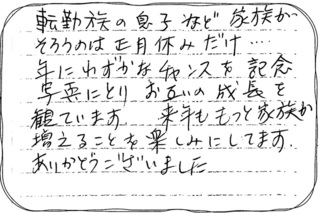 転勤族の息子など 家族が
そろうのは正月休みだけ‥‥
年にわずかなチャンスを記念
写真にとり お互いの成長を
観ています. 来年ももっと家族が
増えることを楽しみにしてます.
ありがとうございました